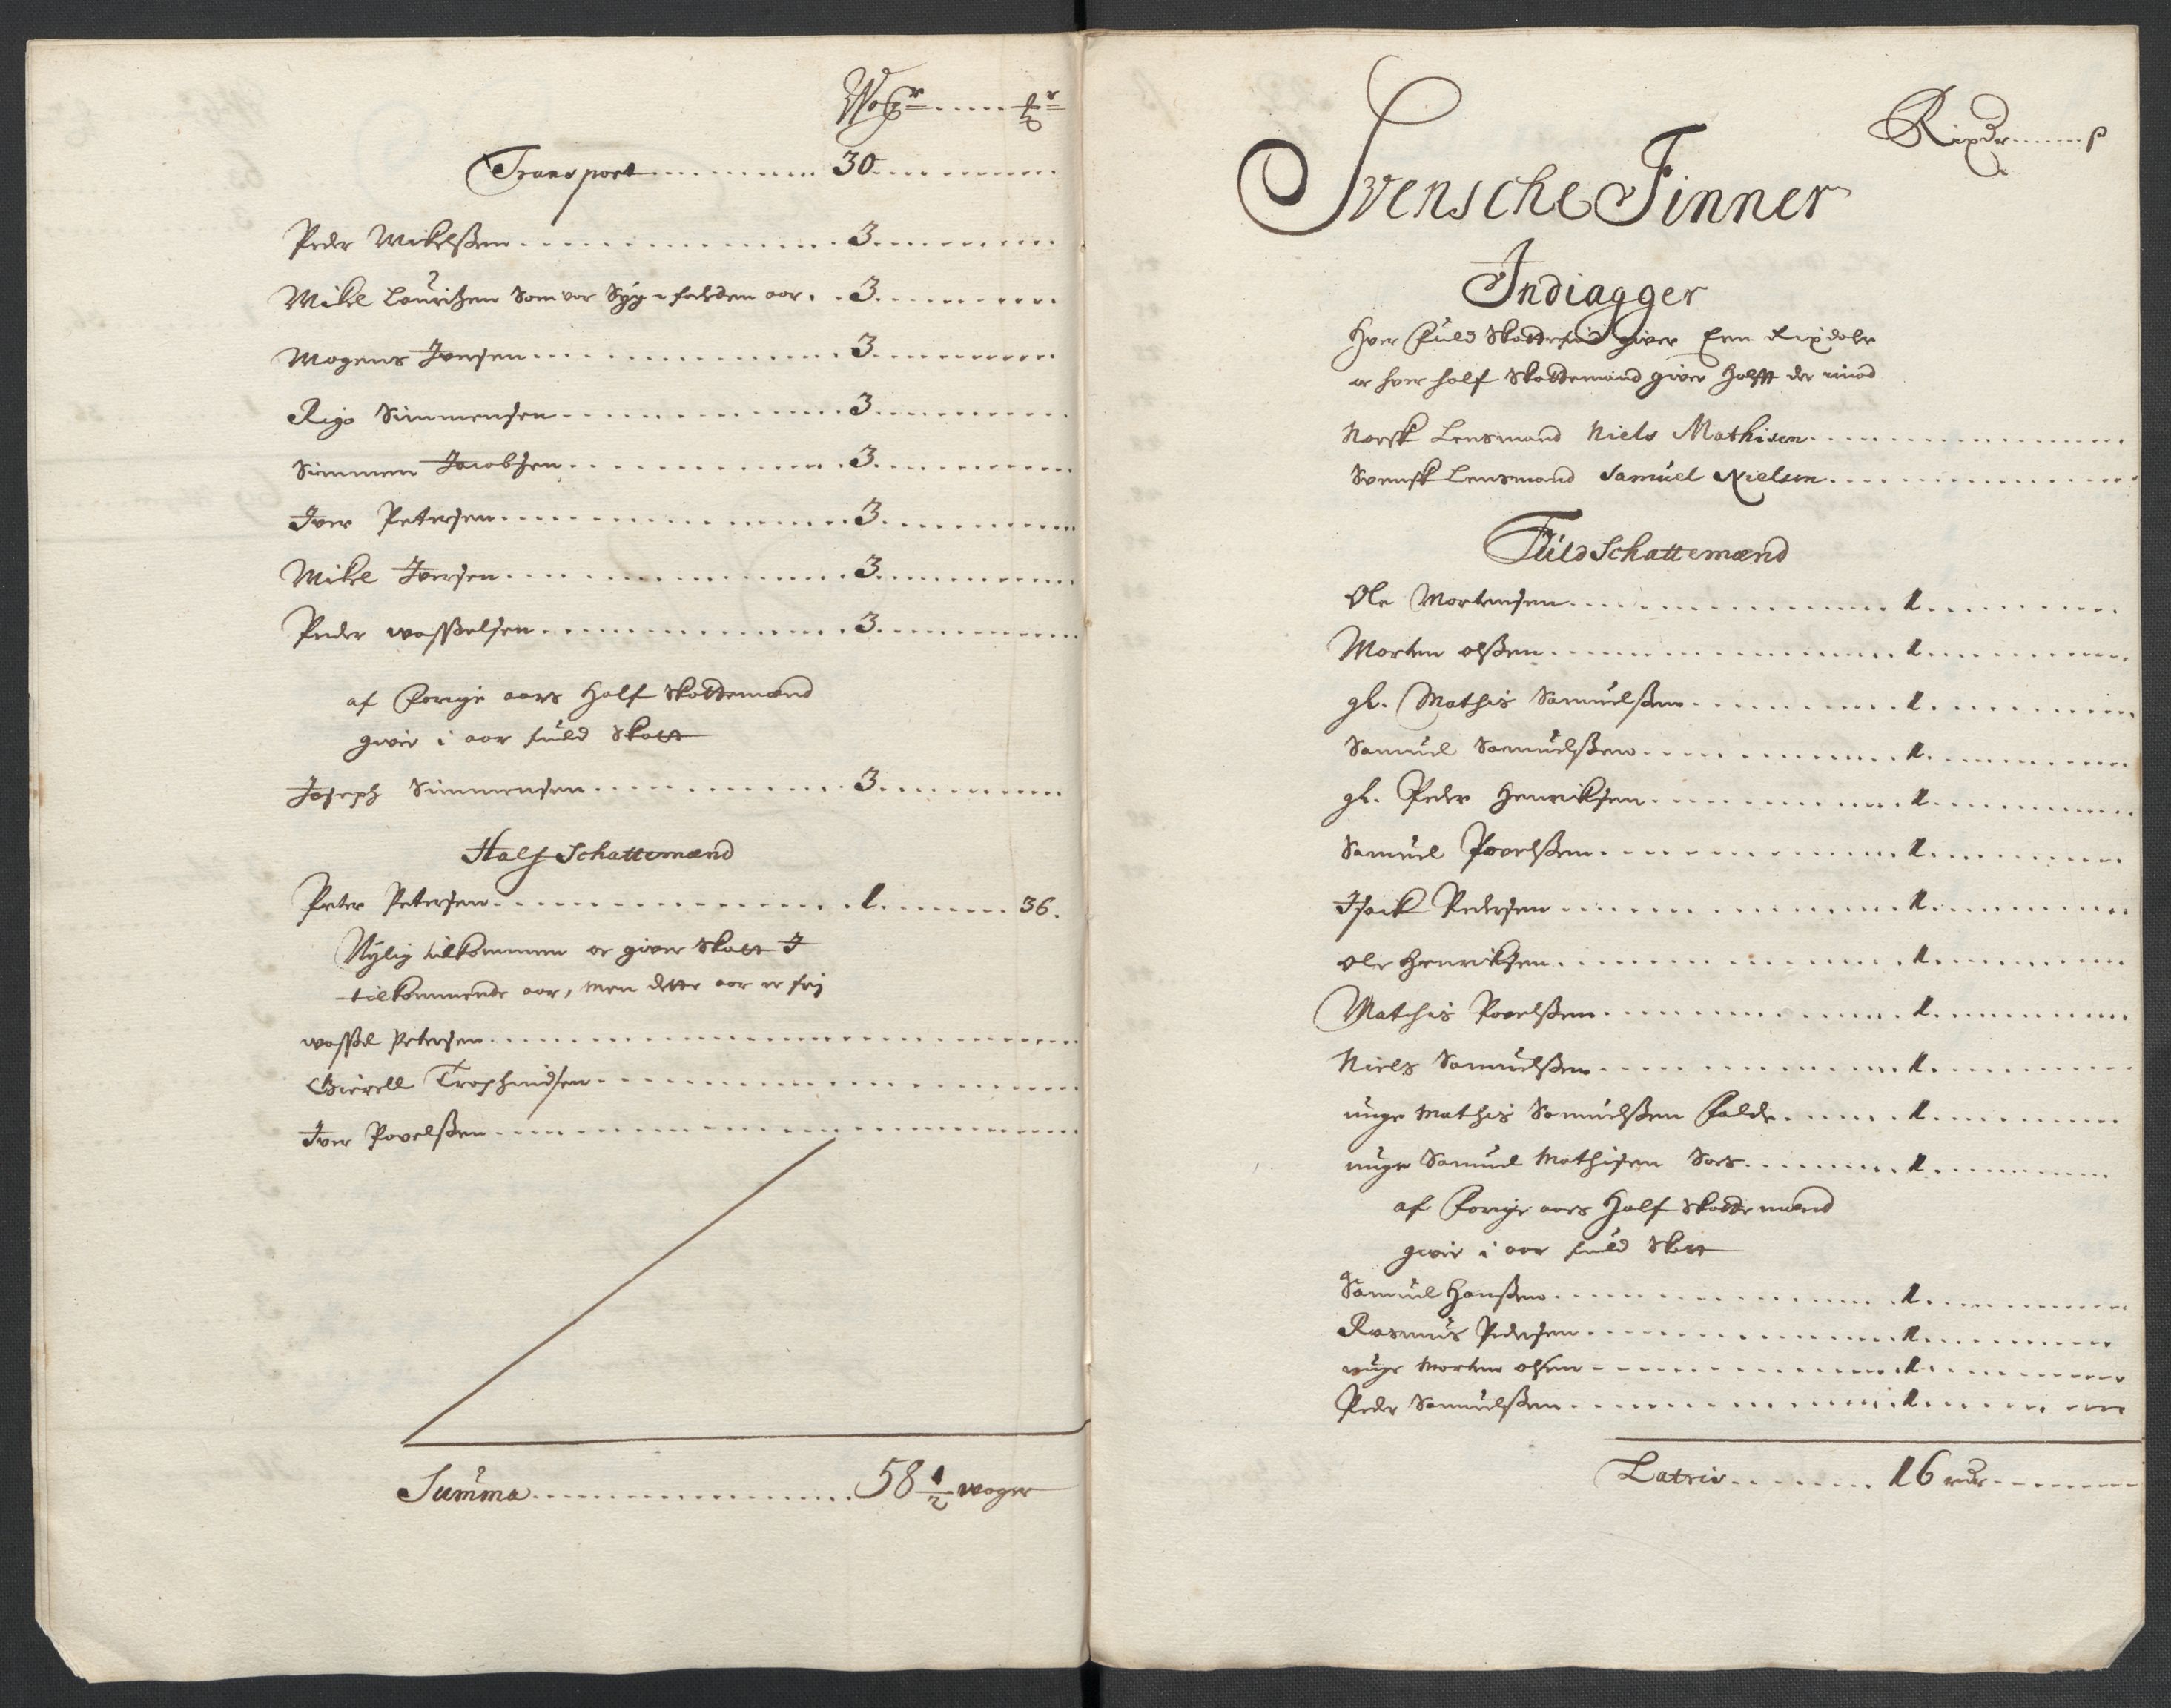 Wogr ...... ℔r
Transport ......... 30 .........
Peder Mikelßen ......... 3 .........
Mikel Lauritzen Som var Syg forleden aar. 3 .........
Mogens Iversen ......... 3 .........
Rigo Simmensen ......... 3 .........
Simmen Jacobsen ......... 3 .........
Iver Petersen ......... 3 .........
Mikel Iversen ......... 3 .........
Peder wasßelsen ......... 3 .........
af Forige aars Half Skattemænd
giver i aar fuld Skatt
Joseph Simmensen ......... 3 .........
Half Schattemænd
Peter Petersen ......... 1 ......... 36.
Nylig tilkommen og giver Skatt I
tilkommende aar, men dette aar er frj
wasßel Petersen .........
Gierell Trophimidsen .........
Iver Povelßen .........
Summa ......... 58 1/2 woger
Rixdr ...... ß
Svensche Finner
Indiagger
Hver Fuld Skattefin giver Een Rixdaler
og hver half Skattemand giver Halfft der imod
Norsk Lensmand Niels Mathisen .........
Svensk Lensmand Samuel Nielsen .........
Fuld Schattemænd
Ole Mortensen ......... 1 .........
Morten olßen ......... 1 .........
gl. Mathis Samuelßen ......... 1 .........
Samuel Samuelßen ......... 1 .........
gl. Peder Henriksen ......... 1 .........
Samuel Povelßen ......... 1 .........
Isack Pedersen ......... 1 .........
Ole Henriksen ......... 1 .........
Mathis Povelßen ......... 1 .........
Niels Samuelßen ......... 1 .........
unge Mathis Samuelßen Falde ......... 1 .........
unge Samuel Mathisen Sors ......... 1 .........
af Forige aars Half Skattemænd
giver i aar fuld Skatt
Samuel Hanßen ......... 1 .........
Rasmus Pedersen ......... 1 .........
unge Morten olsen ......... 1 .........
Peder Samuelßen ......... 1 .........
Lateris ......... 16 rdr .........